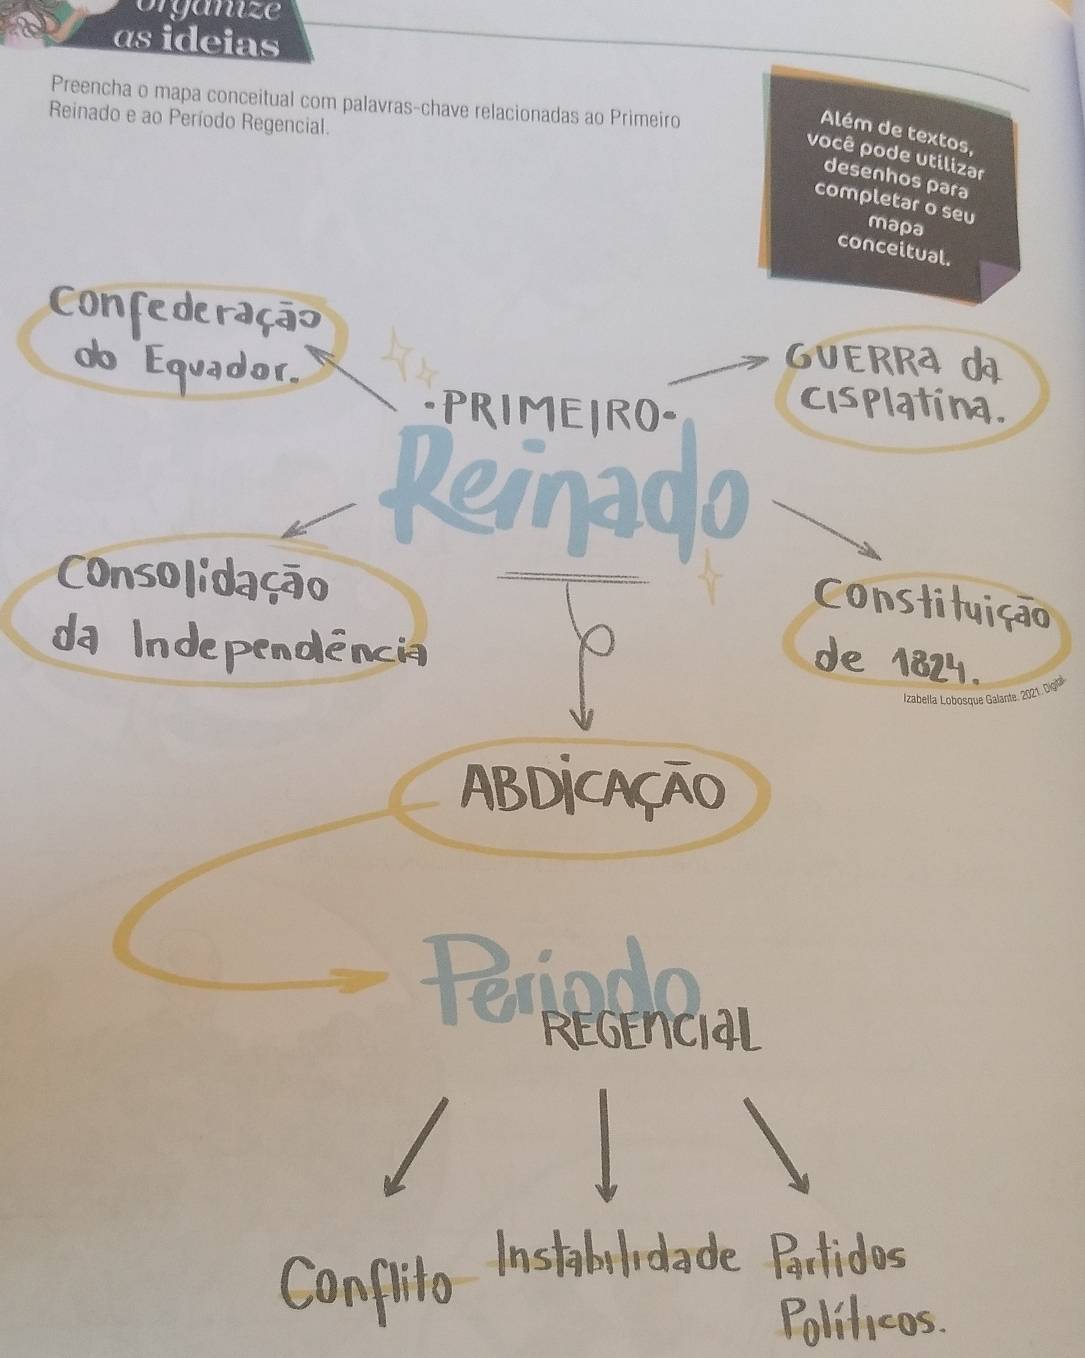 organize
as ideias
Preencha o mapa conceitual com palavras-chave relacionadas ao Primeiro
Reinado e ao Período Regencial.
Além de textos,
você pode utilizar
desenhos para
completar o seu
mapa
conceitual.
Confederação
do Equador.
GUERRA da
Cisplatina.
·PRIMEIRO·
Reinado
Consolidação
da Independência
Constituição
de 1824.
Izabella Lobosque Galante. 2021. Digital.
ABDiCAÇÃO
Período
REGEncial
Conflito
Instabilidade
Partidos
Políticos.